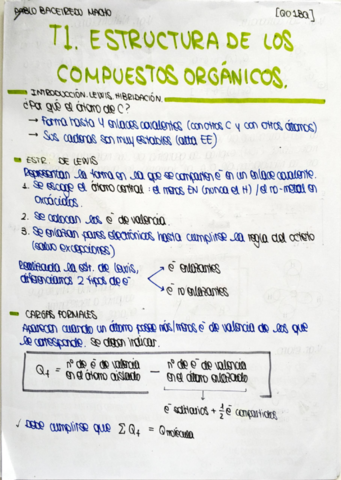 PABLO BACEIREDO MACHO
[QO1BQ]
T1. ESTRUCTURA DE LOS
COMPUESTOS ORGÁNICOS.
INTRODUCCIÓN. LEWIS. HIBRIDACIÓN.
¿Por qué el átomo de C?
→ Forma hasta 4 enlaces covalentes (con otros C y con otros átomos)
→ Sus cadenas son muy estables (alta EE)
ESTR. DE LEWIS
Representan la forma en la que se comparten e⁻ en un enlace covalente.
1. Se escoge el átomo central: el menos EN (nunca el H) / el no-metal en
oxácidos.
2. Se colocan los e⁻ de valencia.
3. Se enlazan pares electrónicos hasta cumplirse la regla del octeto
(salvo excepciones)
Realizada la estr. de Lewis,
diferenciamos 2 tipos de e⁻
e⁻ enlazantes
e⁻ no enlazantes
CARGAS FORMALES
Aparecen cuando un átomo posee más/menos e⁻ de valencia de los que
le corresponde. Se deben indicar.
Qf = nº de e⁻ de valencia en el átomo aislado − nº de e⁻ de valencia en el átomo enlazado
e⁻ solitarios + 1/2 e⁻ compartidos
✓ Debe cumplirse que Σ Qf = Qmolécula